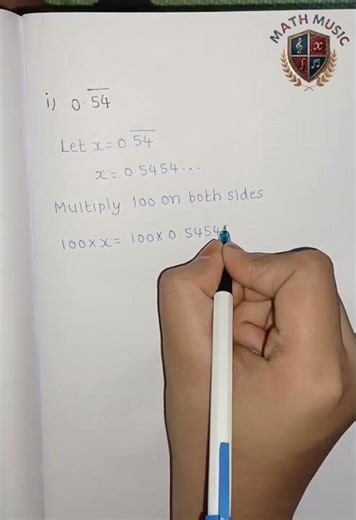 MATH MUSIC
i) 0.5̅4̅
Let x = 0.5̅4̅
x = 0.5454...
Multiply 100 on both sides
100 × x = 100 × 0.5454